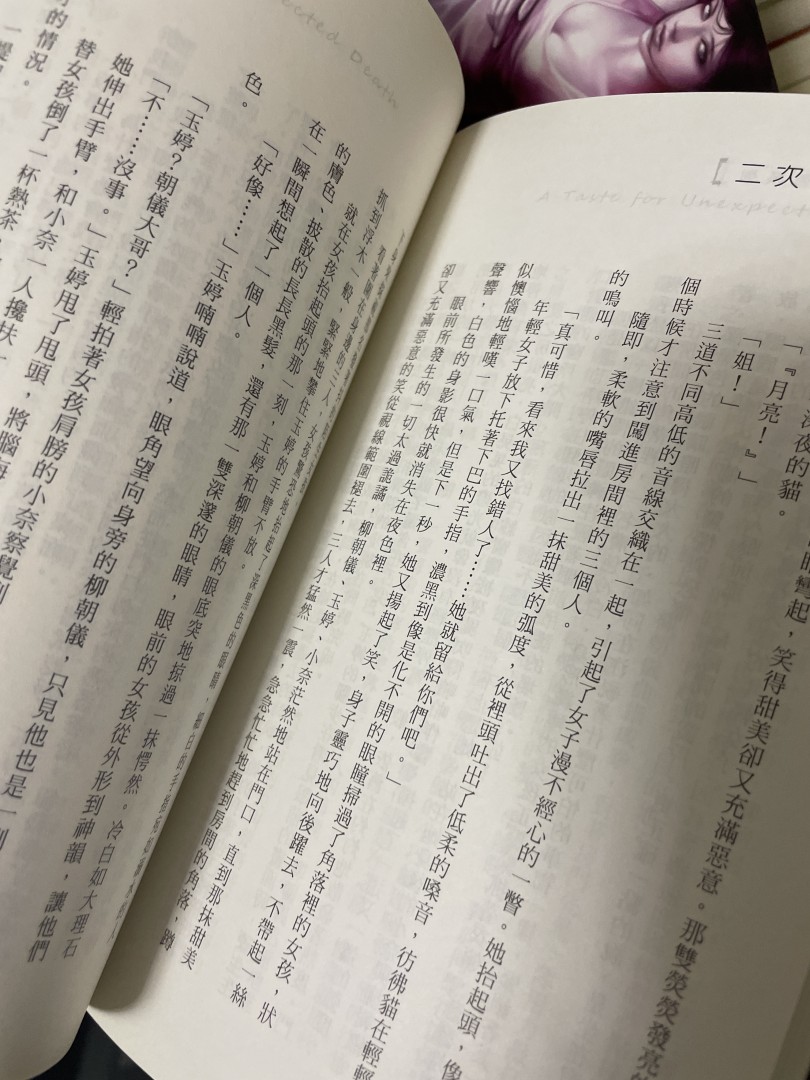 二次
A Taste for Unexpect
彎起，笑得甜美卻又充滿惡意。那雙熒熒發亮的
深夜的貓。
「『月亮！』」
「姐！」
三道不同高低的音線交織在一起，引起了女子漫不經心的一瞥。她抬起頭，像
個時候才注意到闖進房間裡的三個人。
隨即，柔軟的嘴唇拉出一抹甜美的弧度，從裡頭吐出了低柔的嗓音，彷彿貓在輕輕
的鳴叫。
「真可惜，看來我又找錯人了……她就留給你們吧。」
年輕女子放下托著下巴的手指，濃黑到像是化不開的眼瞳掃過了角落裡的女孩，狀
似懊惱地輕嘆一口氣，但是下一秒，她又揚起了笑，身子靈巧地向後躍去，不帶起一絲
聲響，白色的身影很快就消失在夜色裡。
眼前所發生的一切太過詭譎，柳朝儀、玉婷、小奈茫然地站在門口，直到那抹甜美
卻又充滿惡意的笑從視線範圍褪去，三人才猛然一震，急急忙忙地趕到房間的角落，蹲
ected Death
看著圍在身邊的三人，女孩驚恐地抬起了深黑色的眼睛，
抓到浮木一般，緊緊地攀住玉婷的手臂不放。
就在女孩抬起頭的那一刻，玉婷和柳朝儀的眼底突地掠過一抹愕然。冷白如大理石
的膚色、披散的長長黑髮，還有那一雙深邃的眼睛，眼前的女孩從外形到神韻，讓他們
在一瞬間想起了一個人。
「好像……」玉婷喃喃說道，眼角望向身旁的柳朝儀，只見他也是一
色。
「玉婷？朝儀大哥？」輕拍著女孩肩膀的小奈察覺到
「不……沒事。」玉婷甩了甩頭，將腦海
她伸出手臂，和小奈一人攙扶一
替女孩倒了一杯熱茶
的情況。